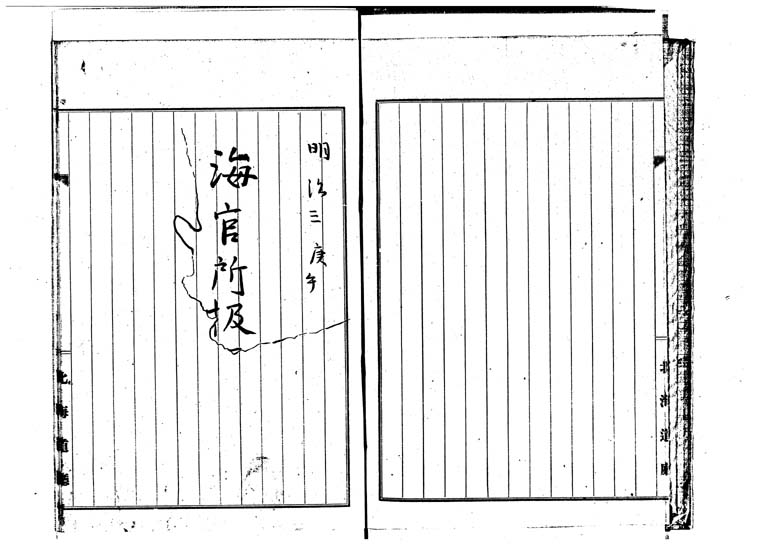 北海道廳
明治三庚午
海官所扱
北海道廳